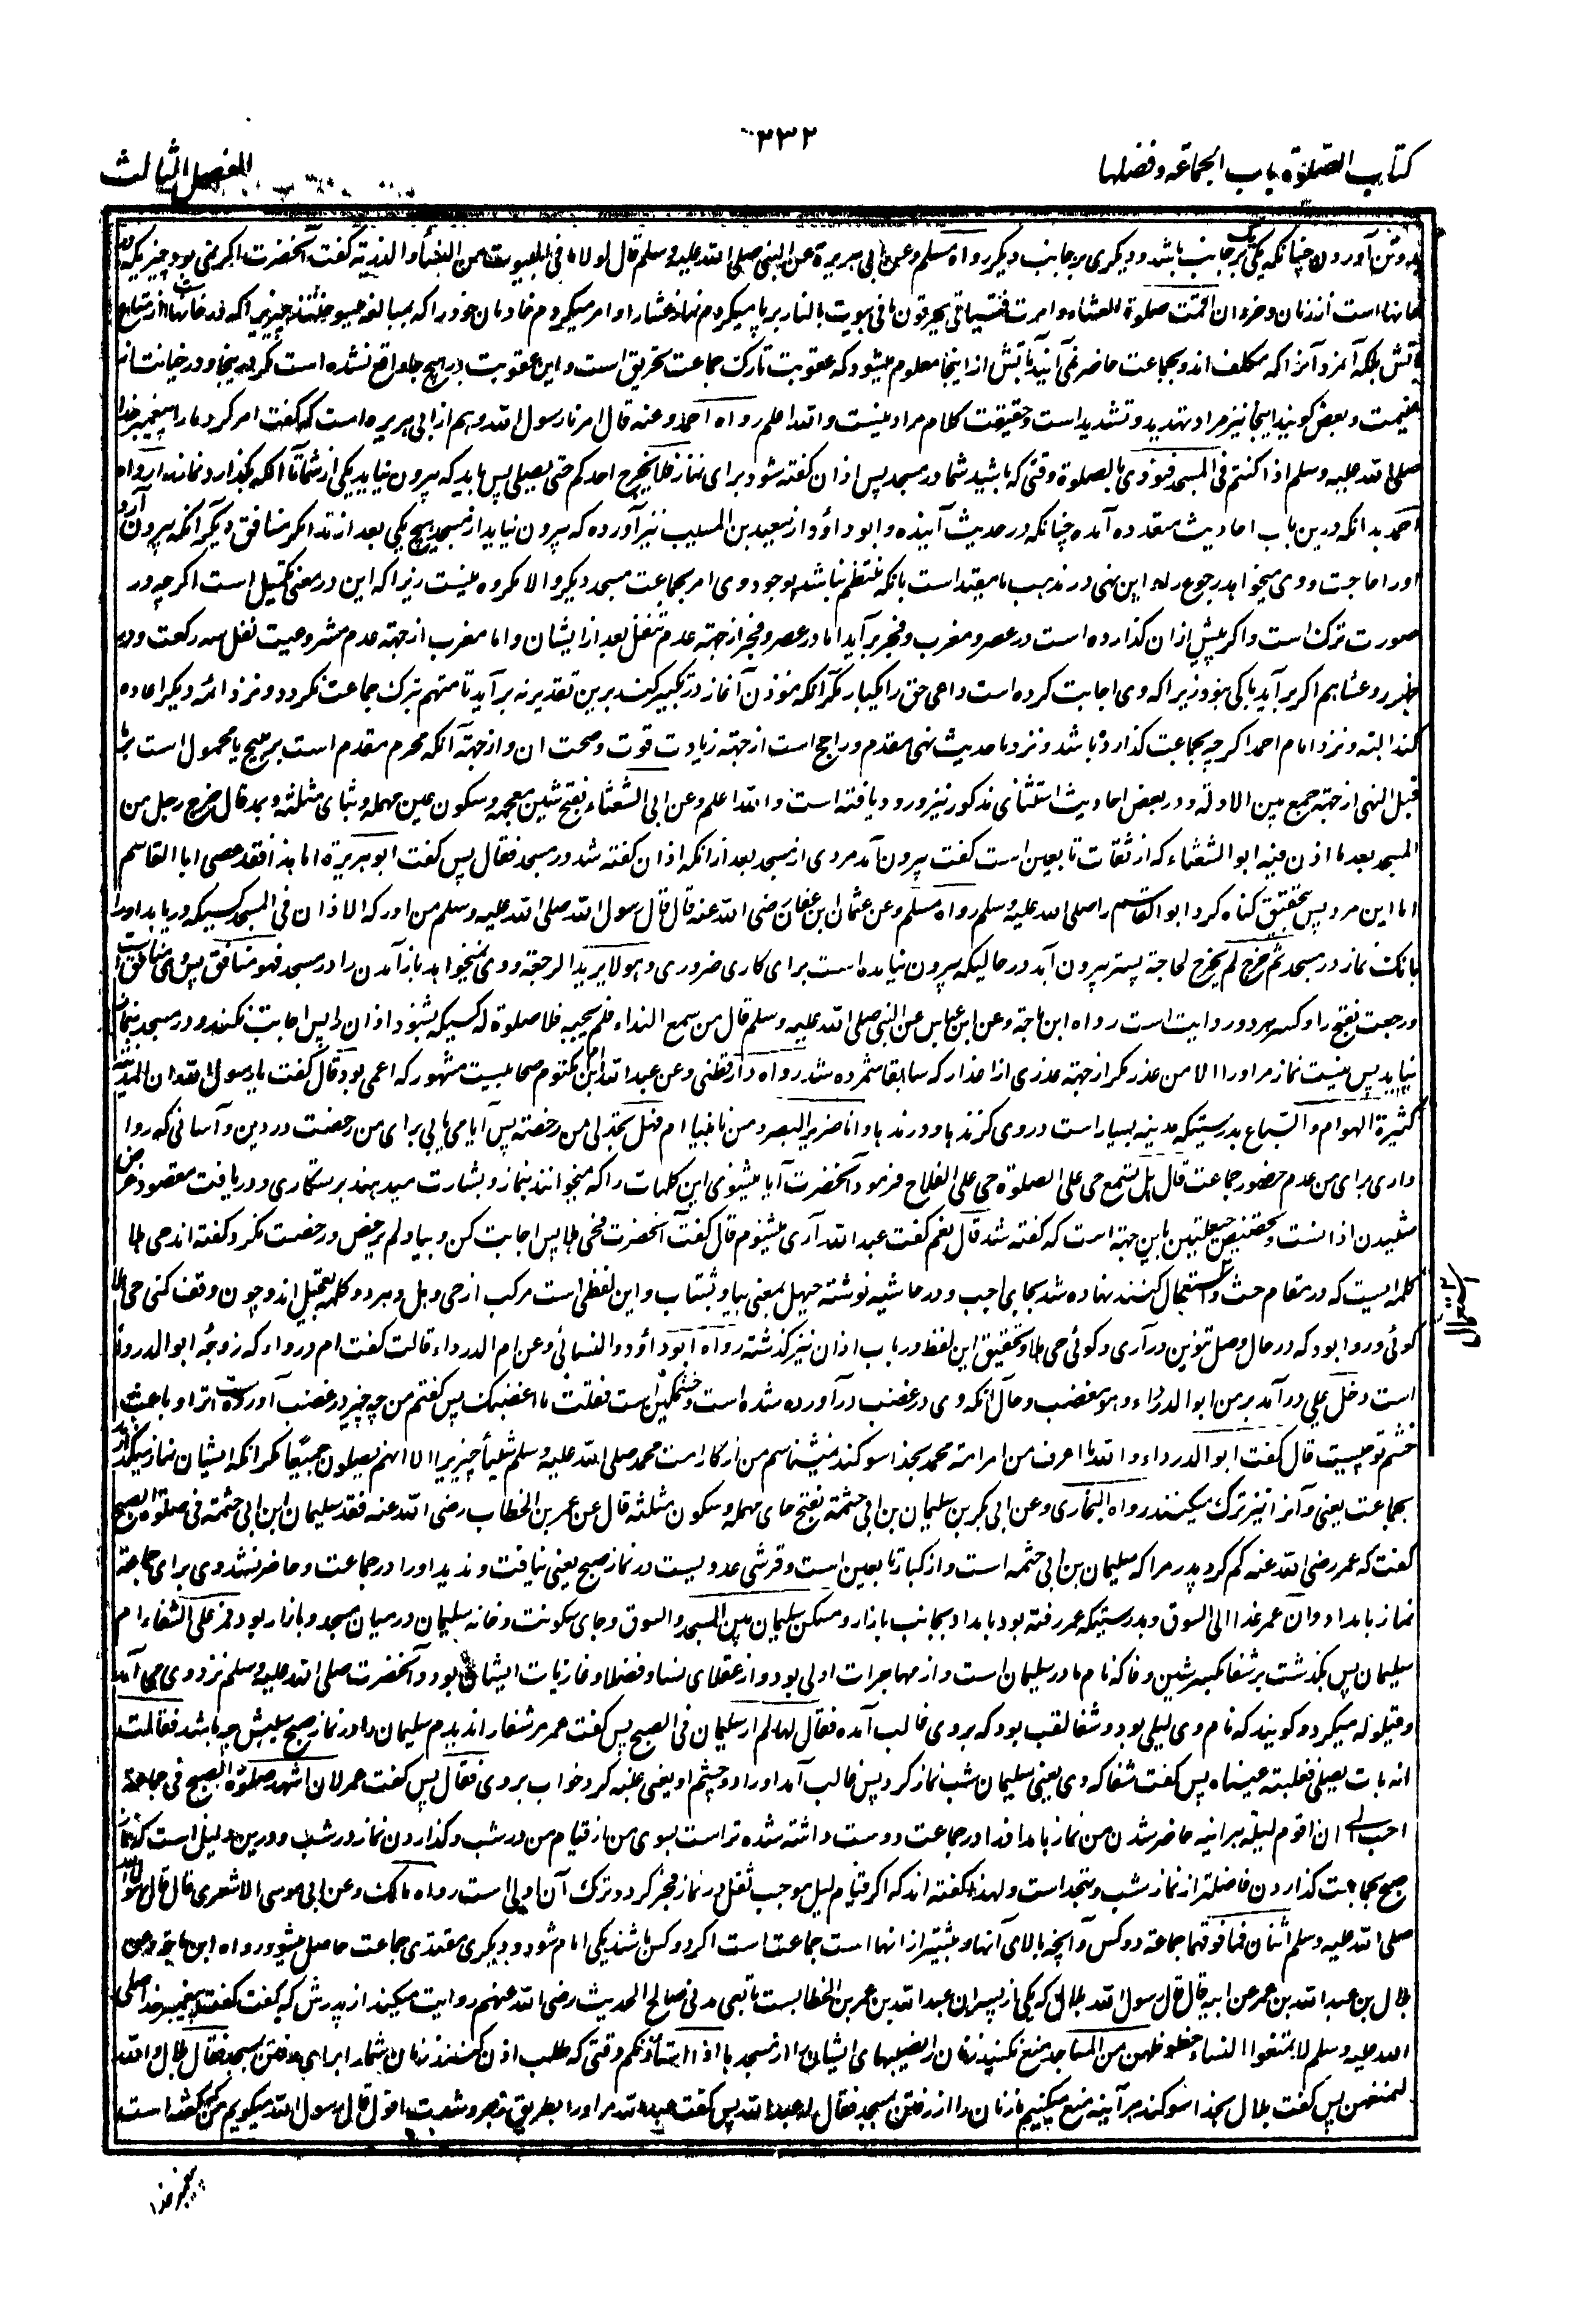 ۳۳۲
كتاب الصلوة باب الجماعة وفضلها
الفصل الثالث
بدوتن آوردن چنانکه یکی بر یک جانب باشد و دیگری بر جانب دیگر رواه مسلم وعن ابی هریرة عن النبی صلی الله علیه وسلم قال لولا ما فی البیوت من النساء والذریة گفت آنحضرت اگر نمی بود چیزیکه در
خانها است از زنان و خردان اقمت صلوة العشاء وامرت فتیانی یحرقون ما فی البیوت بالنار برپا میکردم نماز عشا را و امر میکردم خادمان خود را که بمبالغه میسوختند چیزیرا که در خانها است از متاع
بآتش بلکه آمرد آنرا که مکلف اند و بجماعت حاضر نمی آیند بآتش از اینجا معلوم میشود که عقوبت تارک جماعت تحریق است و این عقوبت در هیچ جا واقع نشده است مگر در اینجا و در خیانت از
غنیمت و بعض گویند اینجا نیز مراد تهدید و تشدید است و حقیقت کلام مراد نیست والله اعلم رواه احمد وعنه قال امرنا رسول الله و هم از ابی هریره است که گفت امر کرد ما را پیغمبر خدا
صلی الله علیه وسلم اذا کنتم فی المسجد فنودی بالصلوة وقتی که باشید شما در مسجد پس اذان گفته شود برای نماز فلا یخرج احدکم حتی یصلی پس باید که بیرون نیاید یکی از شما تا آنکه بگذارد نماز را رواه
احمد بدانکه درین باب احادیث متعدده آمده چنانکه در حدیث آینده و ابو داؤد از سعید بن المسیب نیز آورده که بیرون نیاید از مسجد هیچ یکی بعد از ندا مگر منافق دیگر آنکه بیرون آرد
او را حاجت و وی میخواهد رجوع را و این نهی در مذهب ما مقید است بآنکه منتظم نباشد بوجود وی امر جماعت مسجد دیگر و الا مکروه نیست زیرا که این در معنی تکمیل است اگرچه در
صورت ترک است و اگر پیش ازان گذارده است در عصر و مغرب و فجر برآید اما در عصر و فجر از جهته عدم تنفل بعد از ایشان و اما مغرب از جهته عدم مشروعیت نفل سه رکعت و در
ظهر و عشا هم اگر برآید باکی نبود زیرا که وی اجابت کرده است داعی حق را یکبار مگر آنکه موذن آغاز در تکبیر کند برین تقدیر نه برآید تا متهم بترک جماعت نگردد و نزد ائمه دیگر اعاده
کند البته و نزد امام احمد اگرچه بجماعت گذارده باشد و نزد ما حدیث نهی مقدم و راجح است از جهته زیادت قوت و صحت ان و از جهته آنکه محرم مقدم است بر مبیح یا محمول است بر ما
قبل النهی از جهته جمع بین الادله و در بعض احادیث استثنای مذکور نیز ورود یافته است والله اعلم وعن ابی الشعثاء بفتح شین معجمه و سکون عین مهمله و ثبای مثلثه و مد قال خرج رجل من
المسجد بعد ما اذن فیه ابو الشعثاء که از ثقات تابعین است گفت بیرون آمد مردی از مسجد بعد ازانکه اذان گفته شد در مسجد فقال پس گفت ابو هریرة اما هذا فقد عصی ابا القاسم
اما این مرد پس بتحقیق گناه کرد ابو القاسم را صلی الله علیه وسلم رواه مسلم وعن عثمان ابن عفان رضی الله عنه قال قال رسول الله صلی الله علیه وسلم من ادرکه الاذان فی المسجد کسیکه دریابد او را
بانک نماز در مسجد ثم خرج لم یخرج لحاجة پستر بیرون آید در حالیکه بیرون نیامده است برای کاری ضروری وهو لا یرید الرجعة و وی نمیخواهد باز آمدن را در مسجد فهو منافق پس وی منافق است
ورجعت بفتح را و کسر هر دو روایت است رواه ابن ماجة وعن ابن عباس عن النبی صلی الله علیه وسلم قال من سمع النداء فلم یجبه فلا صلوة له کسیکه بشنود اذان را پس اجابت نکند و در مسجد بنماز
نیاید پس نیست نماز مر او را الا من عذر مگر از جهته عذری از اعذار که سابقا شمرده شد رواه دارقطنی وعن عبد الله ابن ام مکتوم صحابیست مشهور که اعمی بود قال گفت یا رسول الله ان المدینة
کثیرة الهوام والسباع بدرستیکه مدینه بسیار است در وی گزندها و درندها وانا ضریر البصر و من نابینا ام فهل تجد لی من رخصة پس آیا می یابی برای من رخصت در دین و آسانی که روا
داری برای من عدم حضور جماعت قال هل تسمع حی علی الصلوة حی علی الفلاح فرمود آنحضرت آیا میشنوی این کلمات را که میخوانند بنماز و بشارت میدهند برستگاری و دریافت مقصود غرض
شنیدن اذانست و تخصیص حیعلتین باین جهته است که گفته شد قال نعم گفت عبد الله آری میشنوم قال گفت آنحضرت فحی هلا پس اجابت کن و بیا ولم یرخص و رخصت نکرد و گفته اند حی هلا
کلمه ایست که در مقام حث و استعجال کنند نهاده شد بجای اجب و در حاشیه نوشته حیهل بمعنی بیا و بشتاب و این لفظی است مرکب از حی و هل و هر دو کلمه تعجیل اند و چون وقف کنی حی هلا
گوئی و روا بود که در حال وصل تنوین درآری و گوئی حی هلا و تحقیق این لفظ در باب اذان نیز گذشته رواه ابو داؤد والنسائی وعن ام الدرداء قالت گفت ام درداء که زوجهٔ ابو الدرداء
است دخل علی درآمد بر من ابو الدرداء وهو مغضب و حال آنکه وی در غضب درآورده شده است و خشمگین است فقلت ما اغضبک پس گفتم من چه چیز در غضب آورده است ترا و باعث
خشم تو چیست قال گفت ابو الدرداء والله ما اعرف من امر امة محمد بخدا سوگند نمیشناسم من از کار امت محمد صلی الله علیه وسلم شیئا چیزیرا الا انهم یصلون جمیعا مگر آنکه ایشان نماز میگذارند
بجماعت یعنی و آنرا نیز ترک میکنند رواه البخاری وعن ابی بکر بن سلیمان بن ابی حثمة بفتح حای مهمله و سکون مثلثه قال عن عمر بن الخطاب رضی الله عنه فقد سلیمان ابن ابی حثمة فی صلوة الصبح
گفت که عمر رضی الله عنه گم کرد پدر مرا که سلیمان بن ابی حثمه است و از کبار تابعین است و قرشی عدویست در نماز صبح یعنی نیافت و ندید او را در جماعت و حاضر نشد وی برای جماعة
نماز بامداد وان عمر غدا الی السوق و بدرستیکه عمر رفته بود بامداد بجانب بازار ومسکن سلیمان بین المسجد والسوق و جای سکونت و خانه سلیمان در میان مسجد و بازار بود فمر علی الشفاء ام
سلیمان پس بگذشت بر شفا بکسر شین و فا که نام مادر سلیمان است و از مهاجرات اولی بود و از عقلای نسا و فضلا و غازیات ایشان بود و آنحضرت صلی الله علیه وسلم نزد وی می آمد
و قیلوله میکرد و گویند که نام وی لیلی بود و شفا لقب بود که بروی غالب آمده فقال لها لم ار سلیمان فی الصبح پس گفت عمر مر شفا را ندیدم سلیمان را در نماز صبح سببش چه باشد فقالت
انه بات یصلی فغلبته عیناه پس گفت شفا که وی یعنی سلیمان شب نماز کرد پس غالب آمد او را دو چشم او یعنی غلبه کرد خواب بروی فقال پس گفت عمر لان اشهد صلوة الصبح فی جماعة
احب الی ان اقوم لیلة هر آینه حاضر شدن من نماز بامداد را در جماعت دوست داشته شده تر است بسوی من از قیام من در شب و گذاردن نماز در شب و درین دلیل است که نماز
صبح بجماعت گذاردن فاضلتر از نماز شب و تهجد است و لهذا گفته اند که اگر قیام لیل موجب ثقل در نماز فجر گردد ترک آن اولی است رواه مالک وعن ابی موسی الاشعری قال قال رسول الله
صلی الله علیه وسلم اثنان فما فوقهما جماعة دو کس و آنچه بالای آنها و بیشتر از انها است جماعت است اگر دو کس باشند یکی امام شود و دیگری مقتدی جماعت حاصل میشود رواه ابن ماجة وعن
بلال بن عبد الله بن عمر عن ابیه قال قال رسول الله بلال که یکی از پسران عبد الله بن عمر بن الخطابست تابعی مدنی صالح الحدیث رضی الله عنهم روایت میکند از پدرش که گفت گفت پیغمبر خدا صلی
الله علیه وسلم لا تمنعوا النساء حظوظهن من المساجد منع نکنید زنان را نصیبهای ایشان را از مسجد ها اذا استأذنکم وقتی که طلب اذن کنند زنان شما را برای رفتن بمسجد فقال بلال والله
لنمنعهن پس گفت بلال بخدا سوگند هر آینه منع میکنیم ما زنان را از رفتن بمسجد فقال له عبد الله پس گفت عبد الله مر او را بطریق زجر و شعبت اقول قال رسول الله میگویم من که گفته است
پیغمبر خدا